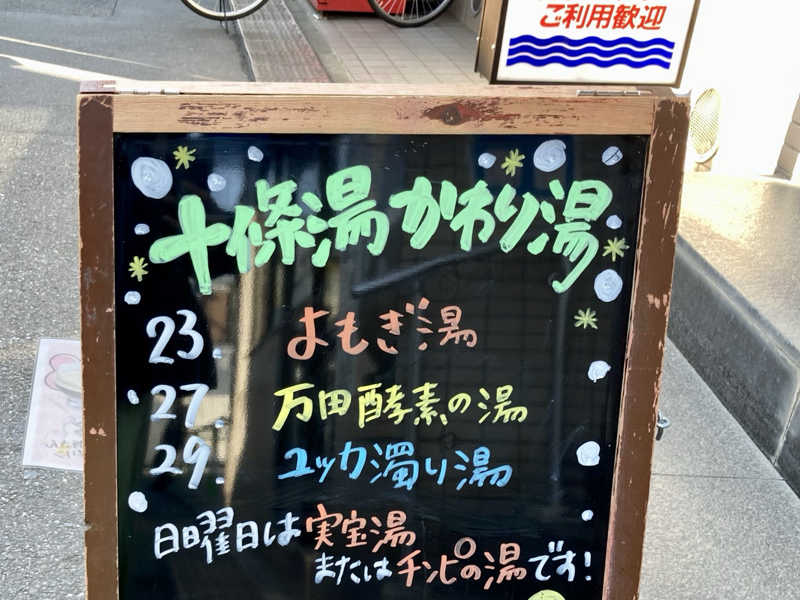 ご利用歓迎
十條湯かわり湯
23. よもぎ湯
27. 万田酵素の湯
29. ユッカ濁り湯
日曜日は実宝湯
またはチンピの湯です!